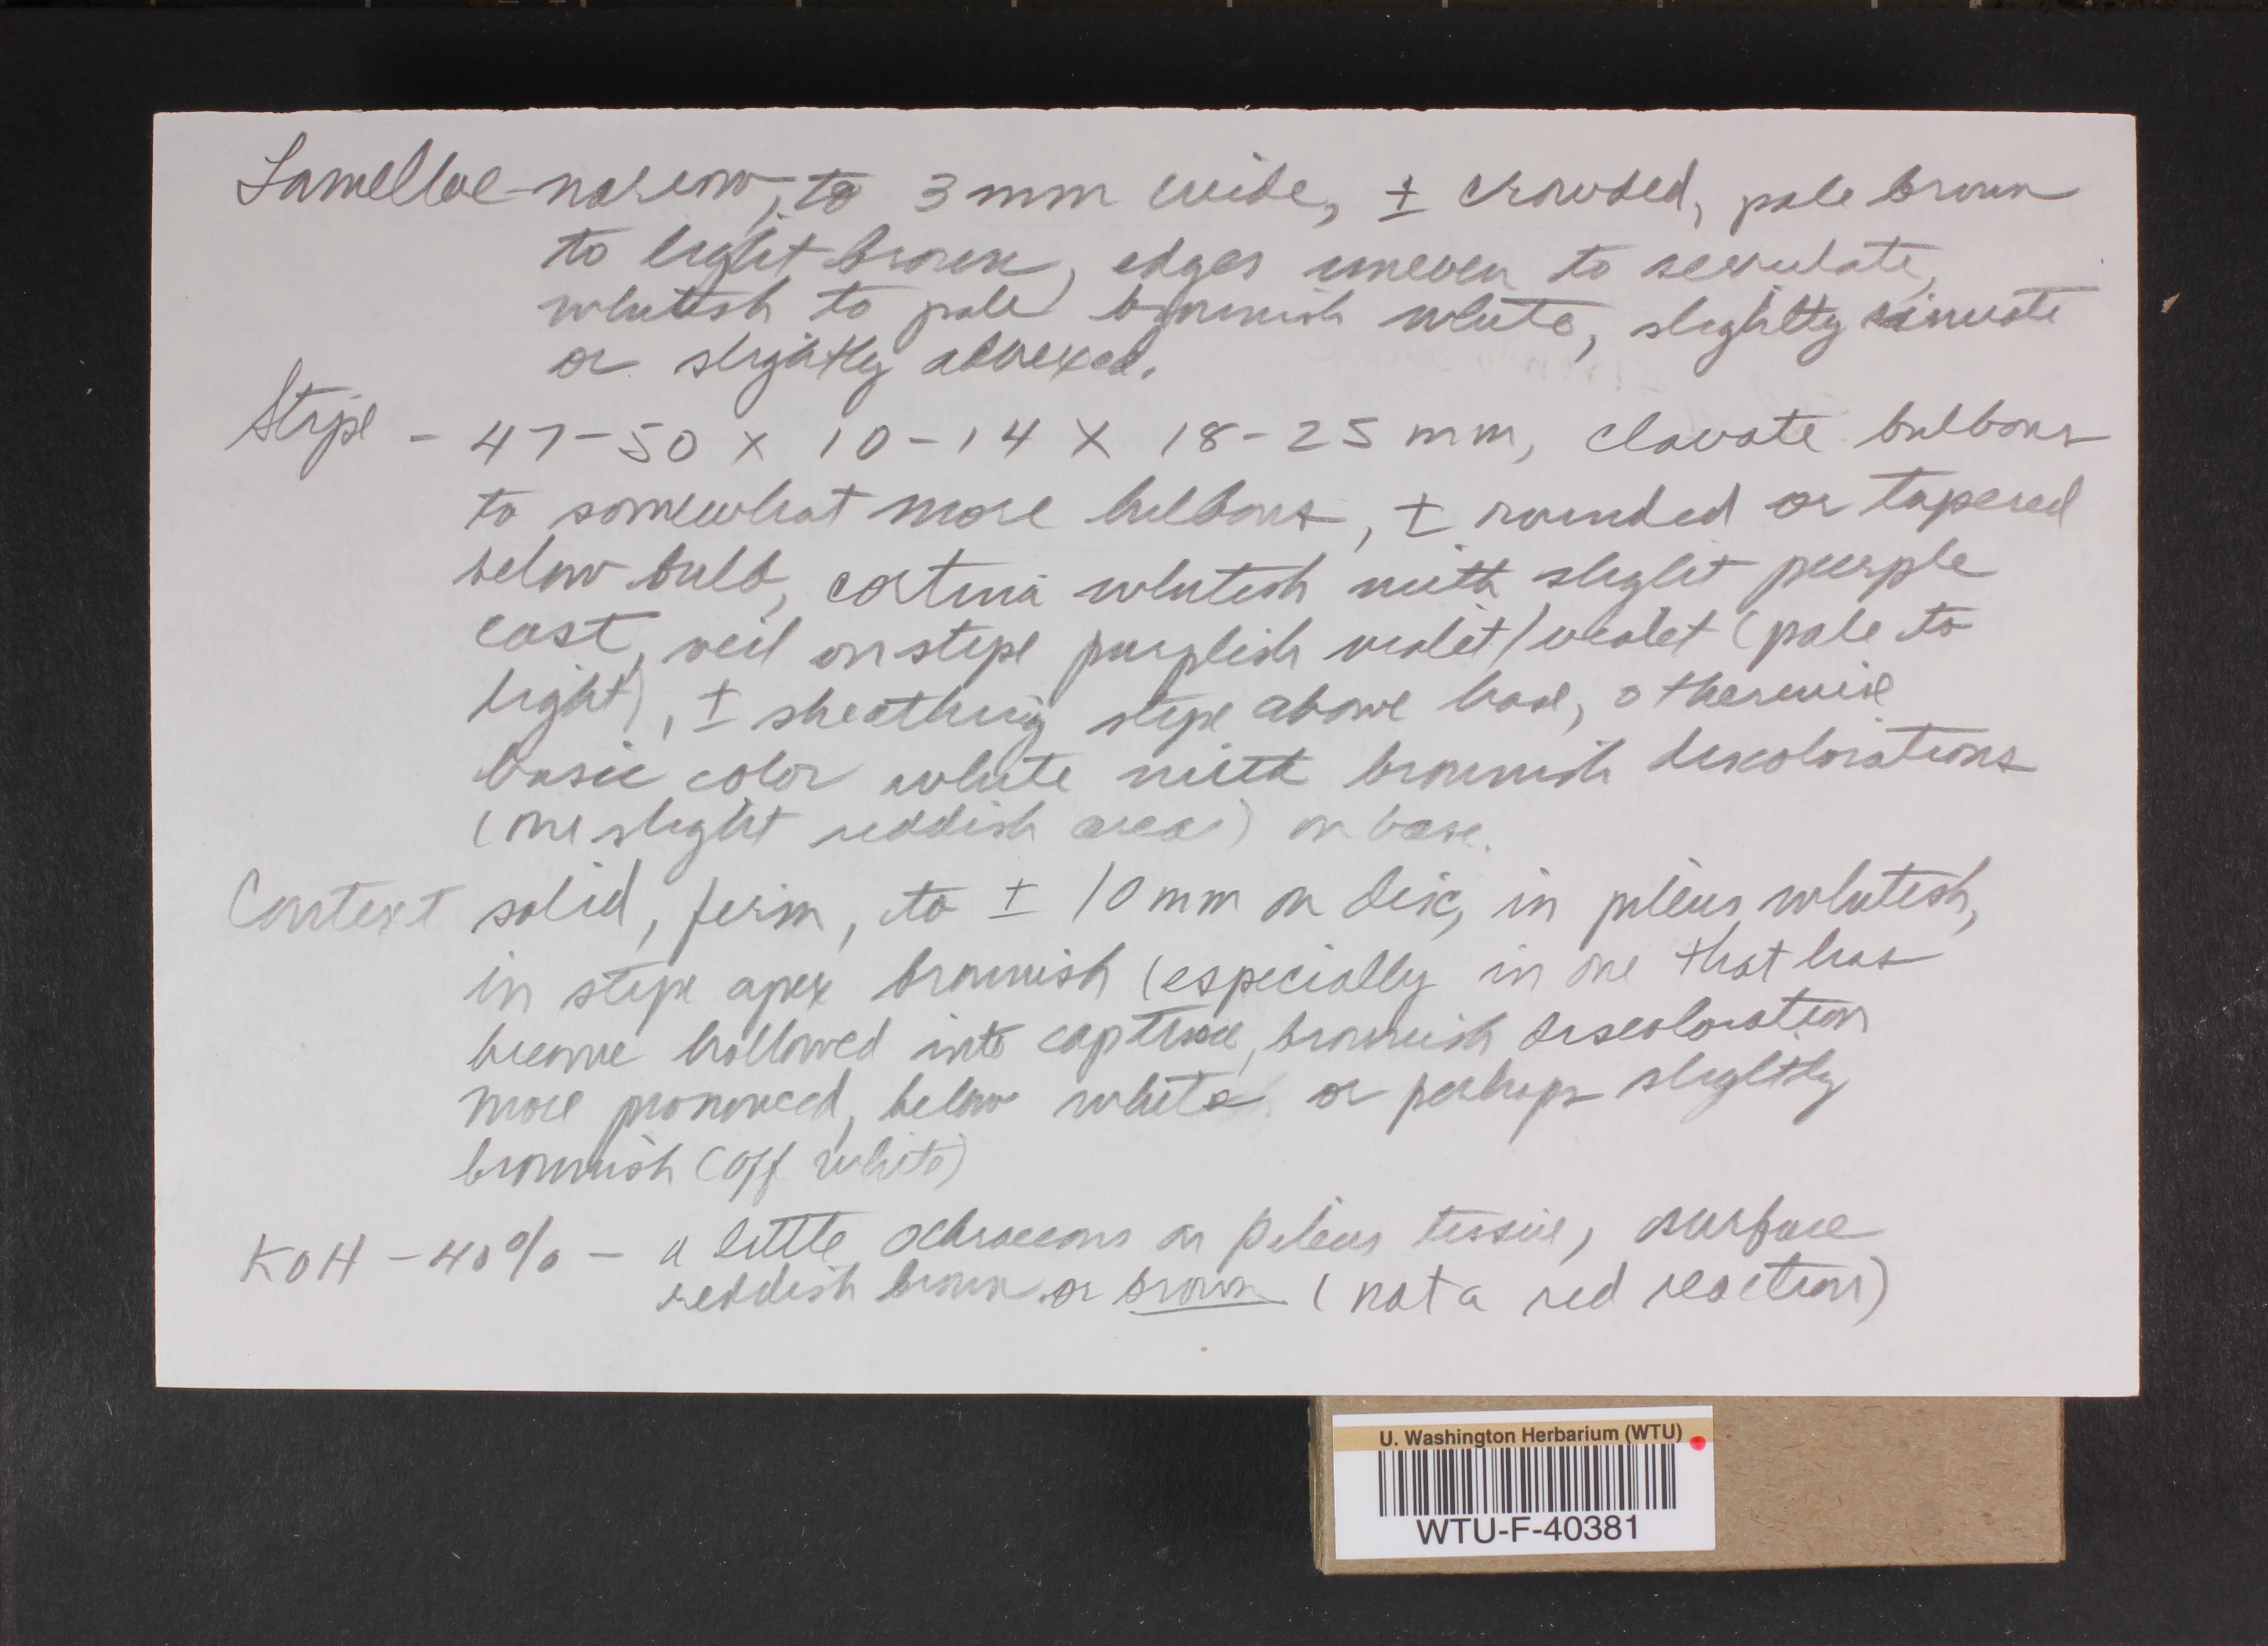 Lamellae - narrow, to 3 mm wide, ± crowded, pale brown
to light brown, edges uneven to serrulate,
whitish to pale brownish white, slightly sinuate
or slightly adnexed.
Stipe - 47-50 x 10-14 x 18-25 mm, clavate bulbous
to somewhat more bulbous, ± rounded or tapered
below bulb, cortina whitish with slight purple
cast, veil on stipe purplish violet/violet (pale to
light), ± sheathing stipe above base, otherwise
basic color white with brownish discolorations
(one slight reddish area) on base.
Context solid, firm, to ± 10 mm on disc, in pileus whitish,
in stipe apex brownish (especially in one that has
become hollowed into cap tissue, brownish discoloration
more pronounced, below white or perhaps slightly
brownish (off white)
KOH - 40% - a little ochraceous on pileus tissue, surface
reddish brown or brown (not a red reaction)
U. Washington Herbarium (WTU)
WTU-F-40381